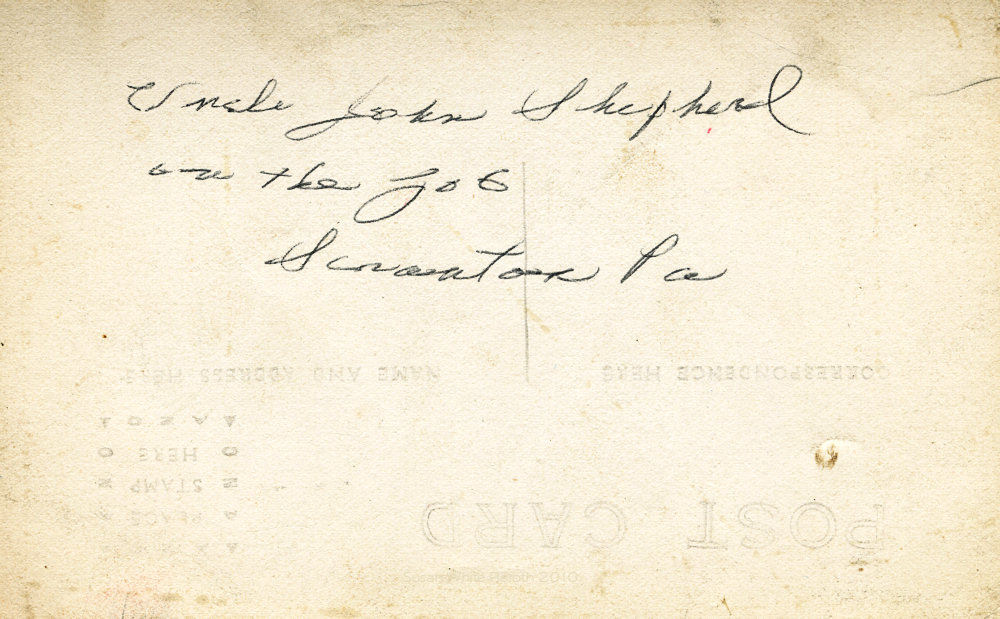 Uncle John Shepherd
on the job
Scranton Pa
CORRESPONDENCE HERE
NAME AND ADDRESS HERE
POST CARD
PLACE
STAMP
HERE
2010